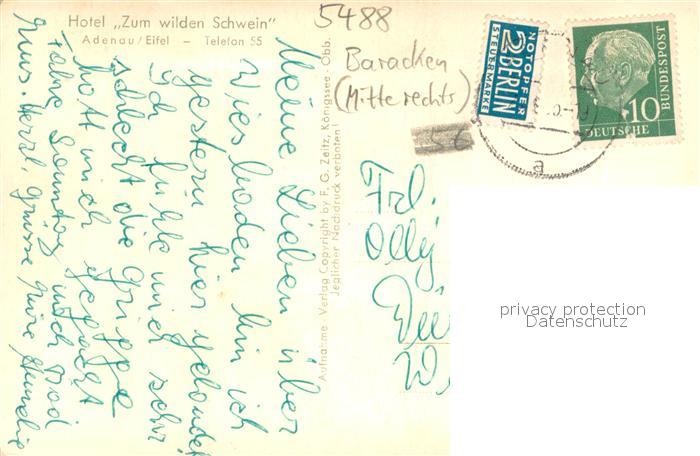 Hotel „Zum wilden Schwein"
Adenau/Eifel – Telefon 55
Meine Lieben über
Wiesbaden bin ich
gestern hier gelandet
Ich fühle mich sehr
schlecht die Grippe
hat mich gepackt
Fahre Sonntag nach Bad
Herzl. Grüsse
Aufnahme - Verlag Copyright by F. G. Zeitz, Königssee - Obb.
Jeglicher Nachdruck verboten!
5488
Baracken
(Mitte rechts)
56
NOTOPFER
2 BERLIN
STEUERMARKE
10
DEUTSCHE
BUNDESPOST
a
Frl.
Olly
W
privacy protection
Datenschutz